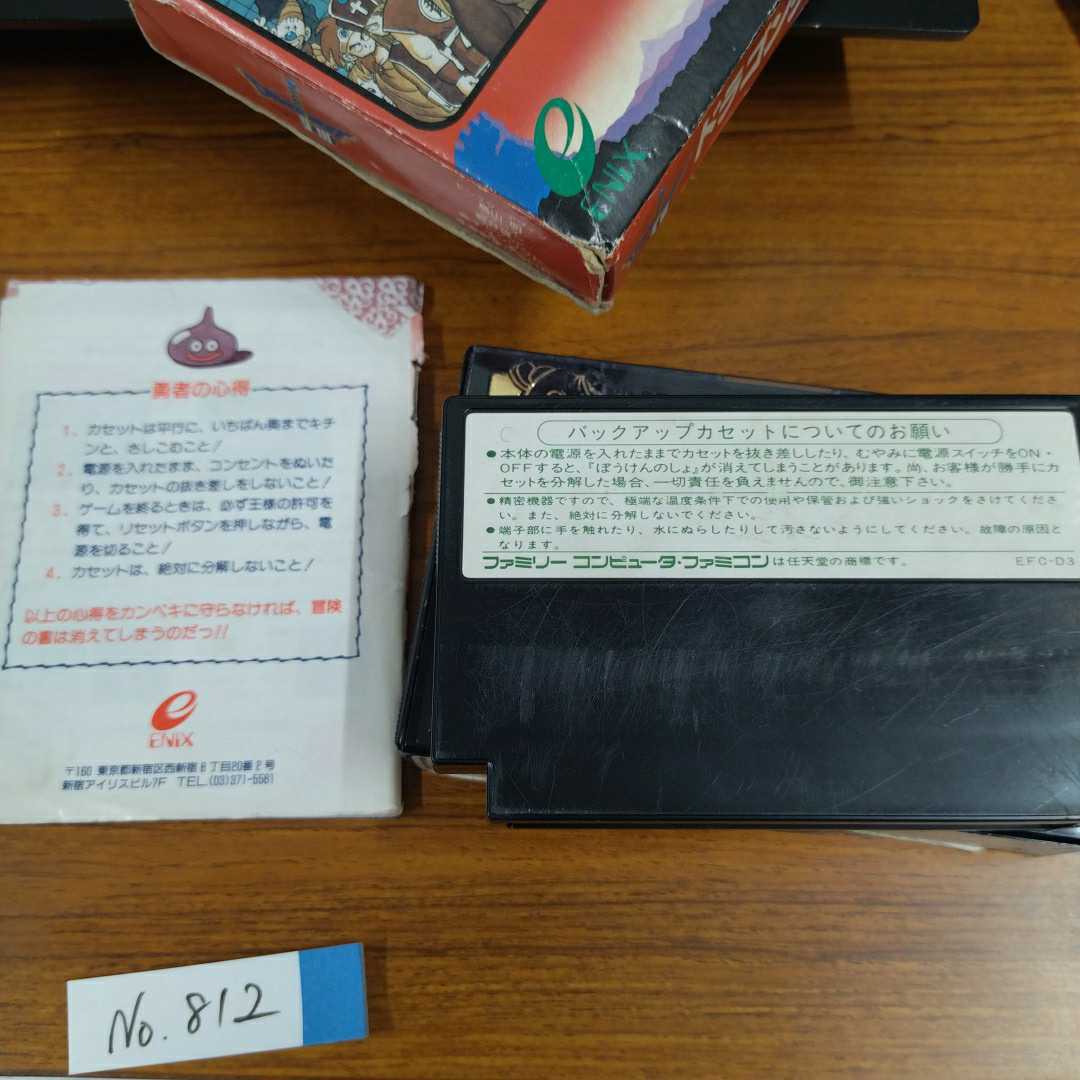 ENIX
ドラゴン
勇者の心得
1. カセットは平行に、いちばん奥までキチ
ンと、さしこむこと!
2. 電源を入れたまま、コンセントをぬいた
り、カセットの抜き差しをしないこと!
3. ゲームを終るときは、必ず王様の許可を
得て、リセットボタンを押しながら、電
源を切ること!
4. カセットは、絶対に分解しないこと!
以上の心得をカンペキに守らなければ、冒険
の書は消えてしまうのだっ!!
ENIX
〒160 東京都新宿区西新宿8丁目20番2号
新宿アイリスビル7F TEL.(03)371-5581
バックアップカセットについてのお願い
●本体の電源を入れたままでカセットを抜き差ししたり、むやみに電源スイッチをON・
OFFすると、『ぼうけんのしょ』が消えてしまうことがあります。尚、お客様が勝手にカ
セットを分解した場合、一切責任を負えませんので、御注意下さい。
●精密機器ですので、極端な温度条件下での使用や保管および強いショックをさけてくださ
い。また、絶対に分解しないでください。
●端子部に手を触れたり、水にぬらしたりして汚さないようにしてください。故障の原因と
なります。
ファミリー コンピュータ・ファミコンは任天堂の商標です。 EFC-D3
No. 812